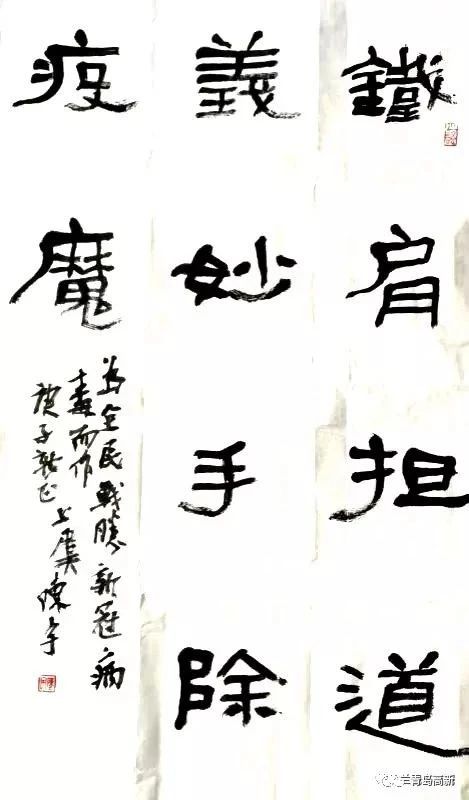 鐵肩担道
義妙手除
疫魔
為全民戰勝新冠病
毒而作
庚子新正上虞陳
兰青岛高新